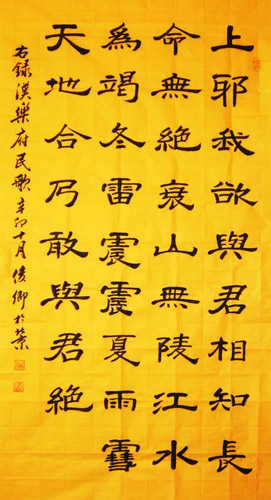 上邪我欲與君相知長
命無絕衰山無陵江水
為竭冬雷震震夏雨雪
天地合乃敢與君絕
右錄漢樂府民歌辛卯十月俊卿於